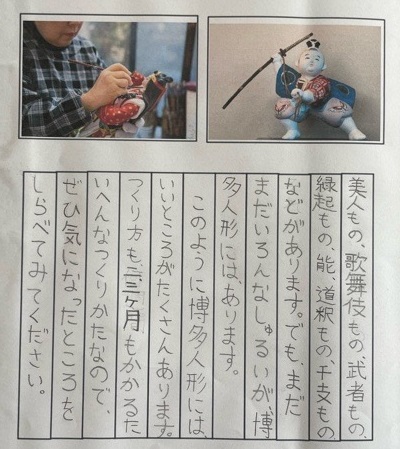 美人もの、歌舞伎もの、武者もの、
縁起もの、能、道釈もの、干支もの
などがあります。でも、まだ
まだいろんなしゅるいが、博
多人形には、あります。
このように博多人形には、
いいところがたくさんあります。
つくり方も、二三ヶ月もかかるた
いへんなつくりかたなので、
ぜひ気になったところを
しらべてみてください。